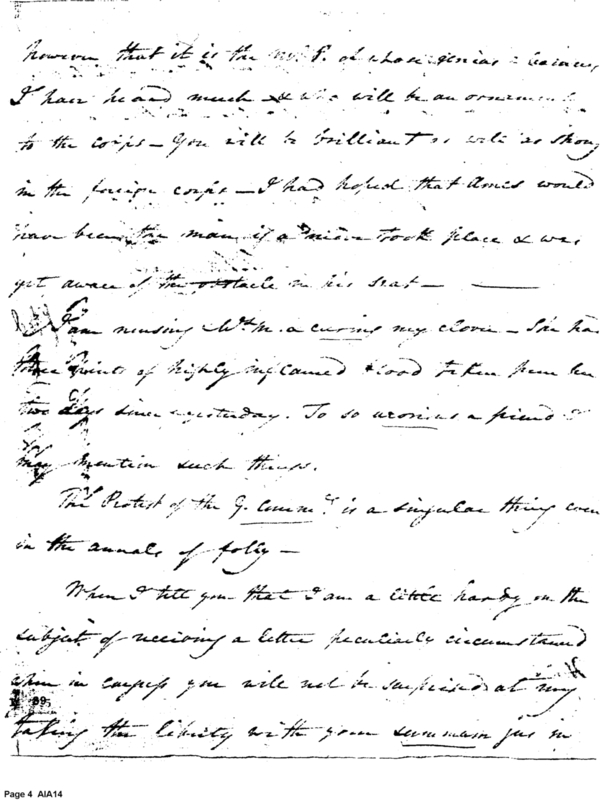 however that it is the Mr. P. of whose genius & learning
I have heard much & who will be an ornament
to the corps – You will be brilliant as well as strong
in the foreign corps – I had hoped that Ames would
have been the man, if a took place & was
yet aware of the obstacle in his seat –
I am nursing Mrs. M. & curing my clover – She has
three pints of highly inflamed blood taken from her
two days since & yesterday. To so a friend I
may mention such things.
The Protest of the G. Comme. is a singular thing even
in the annals of folly –
When I tell you that I am a little hardy on the
subject of receiving a letter peculiarly circumstanced
when in congress you will not be surprised at my
taking the liberty with your summum jus in
Page 4 AIA14